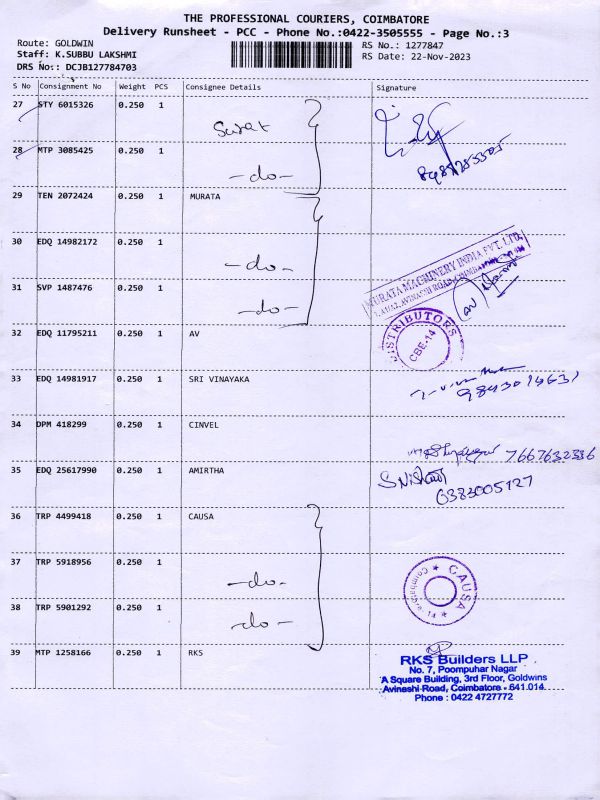 THE PROFESSIONAL COURIERS, COIMBATORE
Delivery Runsheet - PCC - Phone No.:0422-3505555 - Page No.:3
Route: GOLDWIN
RS No.: 1277847
Staff: K.SUBBU LAKSHMI
RS Date: 22-Nov-2023
DRS No.: DCJB127784703
S No Consignment No Weight PCS Consignee Details Signature
27 STY 6015326 0.250 1
28 MTP 3085425 0.250 1 -do-
29 TEN 2072424 0.250 1 MURATA
30 EDQ 14982172 0.250 1 -do-
31 SVP 1487476 0.250 1 -do-
MURATA MACHINERY INDIA PVT. LTD.
AVINASHI ROAD, COIMBATORE
32 EDQ 11795211 0.250 1 AV
DISTRIBUTORS
CBE-14
33 EDQ 14981917 0.250 1 SRI VINAYAKA
34 DPM 418299 0.250 1 CINVEL
7667632336
35 EDQ 25617990 0.250 1 AMIRTHA
6383005127
36 TRP 4499418 0.250 1 CAUSA
37 TRP 5918956 0.250 1 -do-
CAUSA
Coimbatore-14
38 TRP 5901292 0.250 1 -do-
39 MTP 1258166 0.250 1 RKS
RKS Builders LLP
No. 7, Poompuhar Nagar
A Square Building, 3rd Floor, Goldwins
Avinashi Road, Coimbatore - 641 014.
Phone : 0422 4727772